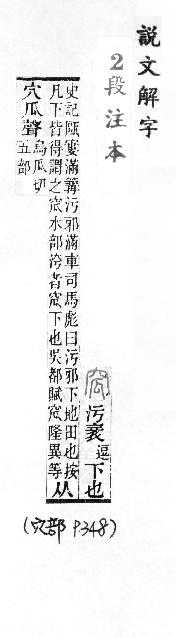 說文解字
2段注本
窊 污衺逗下也
史記甌窶滿篝污邪滿車司馬彪曰污邪下地田也按
凡下皆得謂之窊水部洿者窊下也吳都賦窊隆異等
从
穴瓜聲
烏瓜切
五部
(穴部 P348)